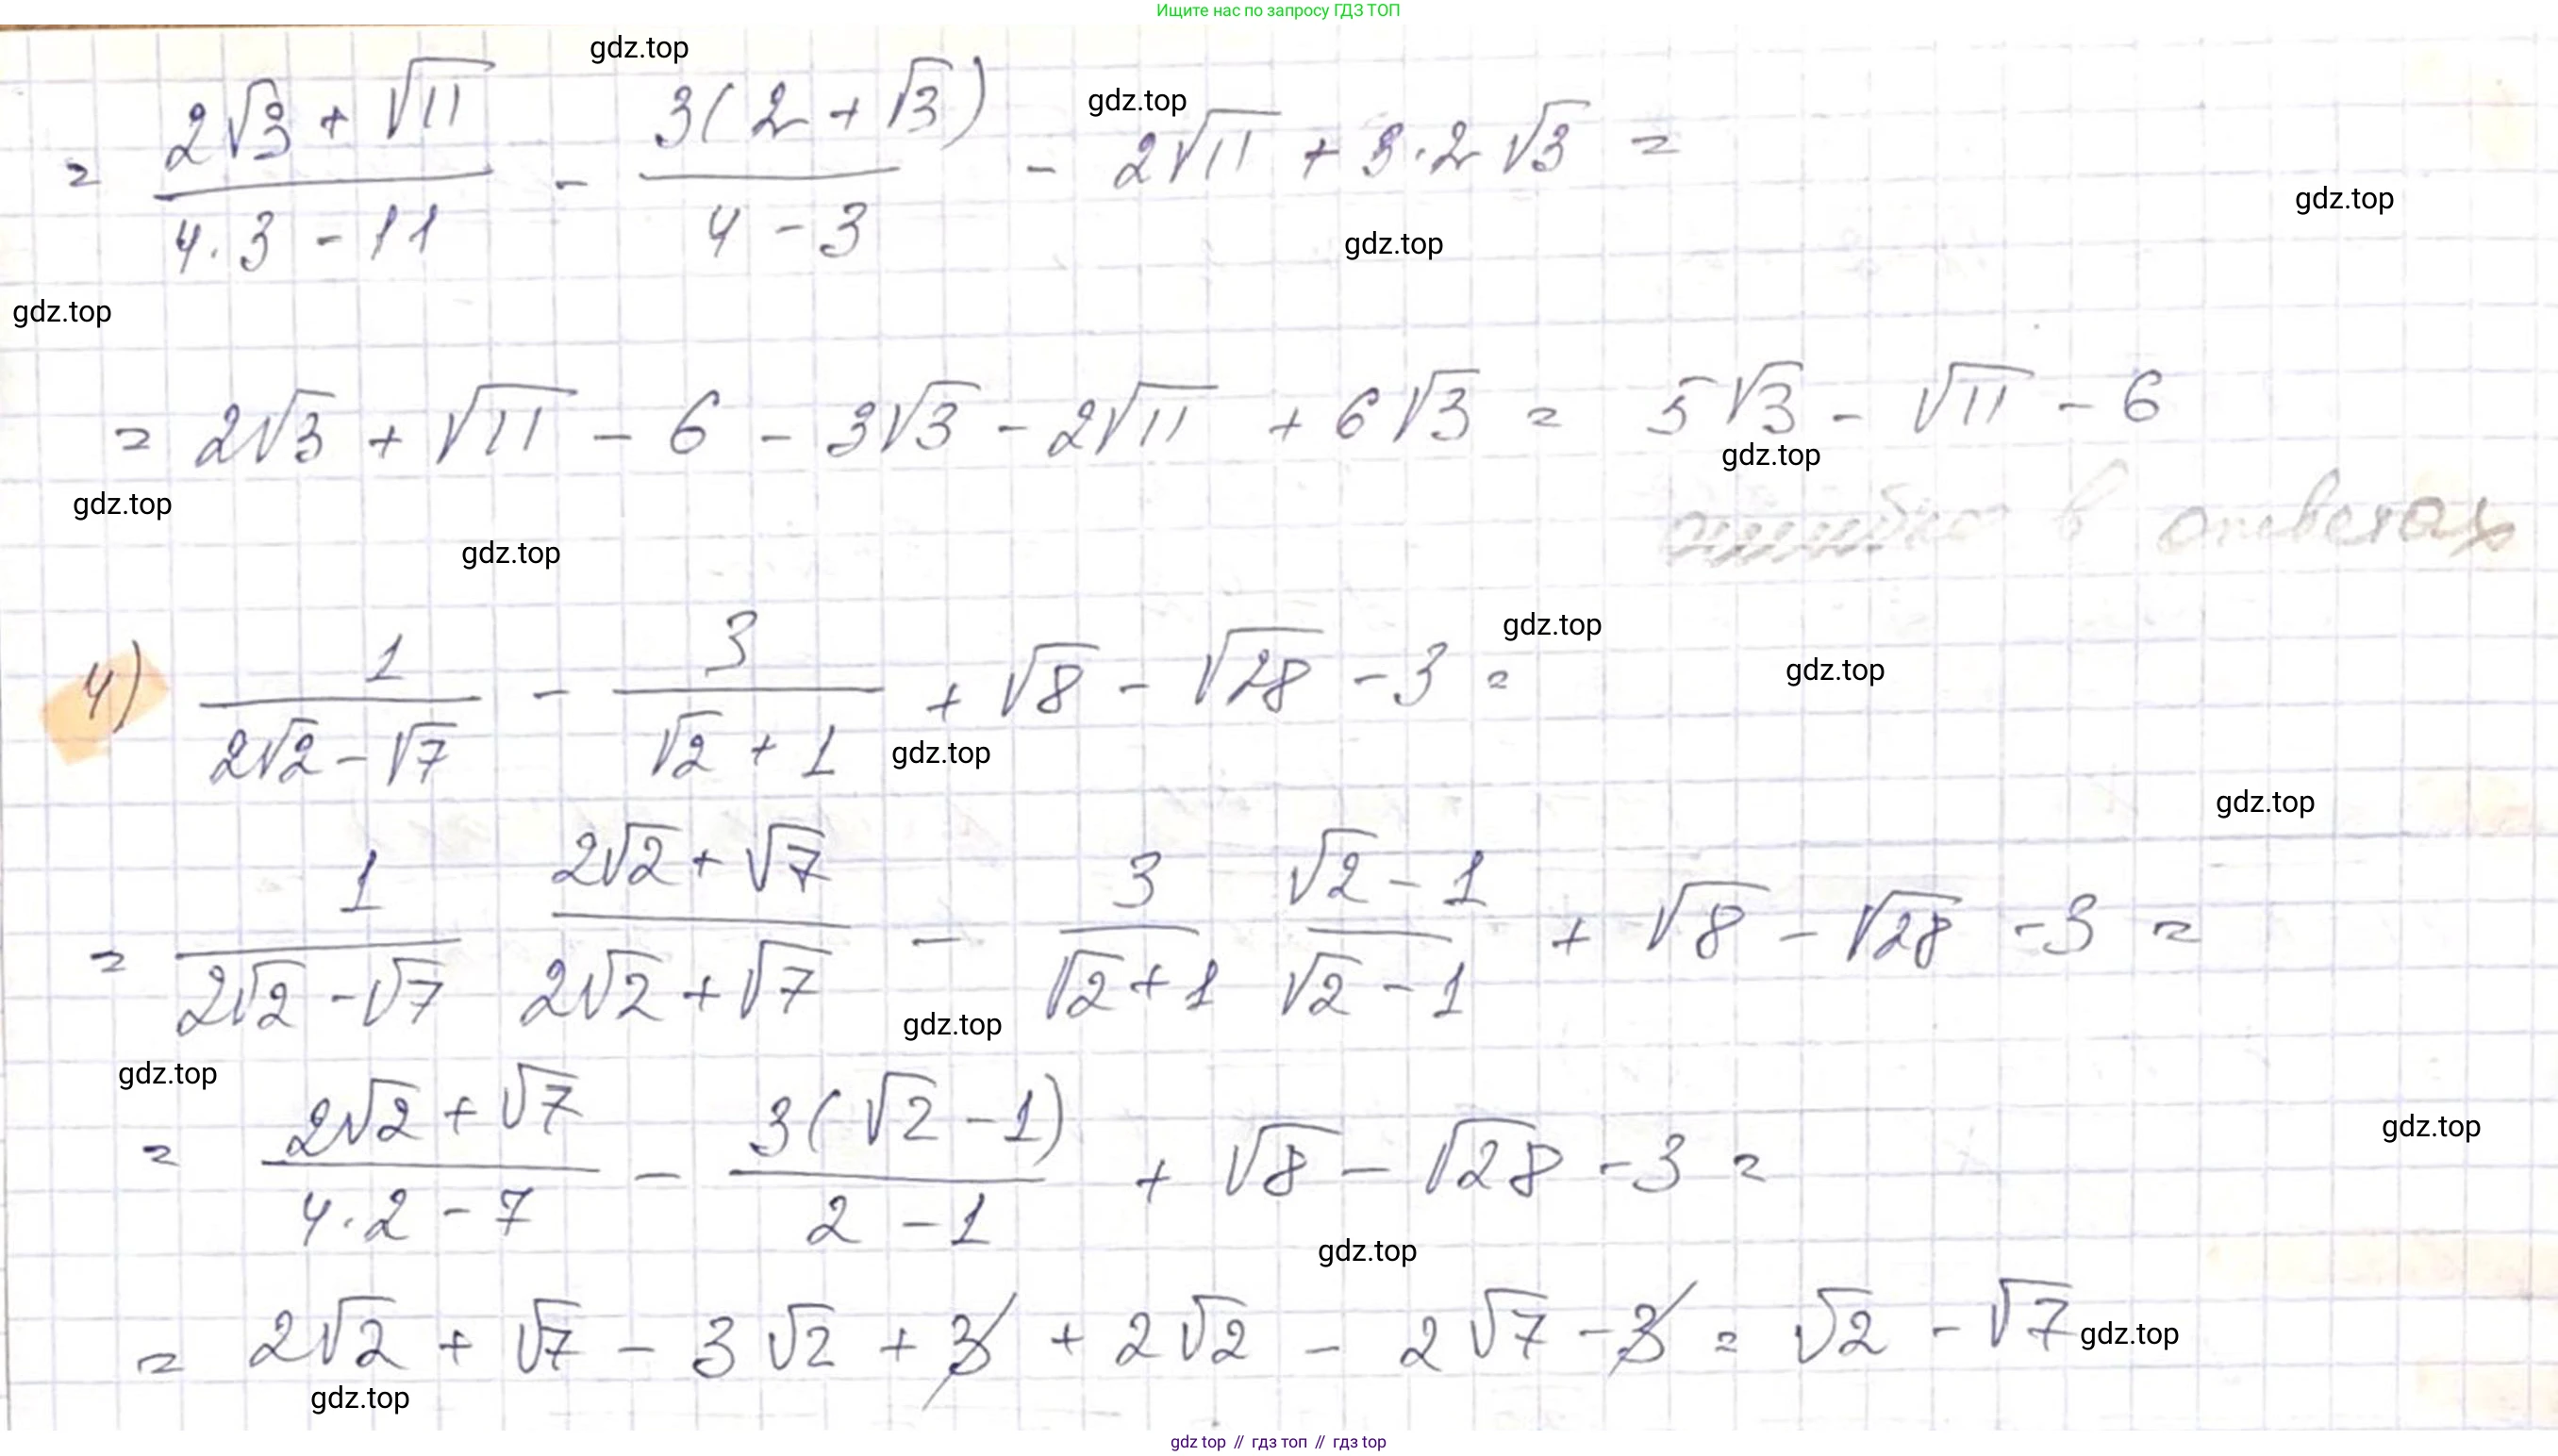 Ищите нас по запросу ГДЗ ТОП
gdz.top
= (2√3 + √11)/(4·3 - 11) - 3(2 + √3)/(4 - 3) - 2√11 + 3·2√3 =
gdz.top
gdz.top
gdz.top
gdz.top
= 2√3 + √11 - 6 - 3√3 - 2√11 + 6√3 = 5√3 - √11 - 6
gdz.top
gdz.top
ошибка в ответах
gdz.top
gdz.top
4) 1/(2√2 - √7) - 3/(√2 + 1) + √8 - √28 - 3 =
gdz.top
gdz.top
gdz.top
= 1/(2√2 - √7) (2√2 + √7)/(2√2 + √7) - 3/(√2 + 1) (√2 - 1)/(√2 - 1) + √8 - √28 - 3 =
gdz.top
gdz.top
gdz.top
= (2√2 + √7)/(4·2 - 7) - 3(√2 - 1)/(2 - 1) + √8 - √28 - 3 =
gdz.top
= 2√2 + √7 - 3√2 + 3 + 2√2 - 2√7 - 3 = √2 - √7
gdz.top
gdz.top
gdz top // гдз топ // гдз top